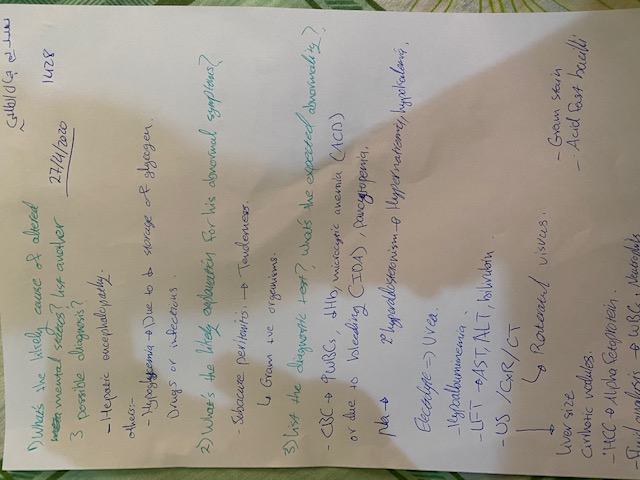 27/4/2020
1428
1) What's the likely cause of altered
mental status? list another
3 possible diagnosis?
- Hepatic encephalopathy.
others:-
- Hypoglycemia → Due to ↓ storage of glycogen.
Drugs or infections.
2) What's the likely explanation for his abnormal symptoms?
- peritonitis → Tenderness.
↳ Gram -ve organisms.
3) List the diagnostic test? What's the expected abnormality?
- CBC → ↑WBC, ↓Hb, microcytic anemia (ACD)
or due to bleeding (IDA), pancytopenia.
Na → 2° hyperaldosteronism → Hypernatremia, hypokalemia.
Electrolyte => Urea.
- Hypoalbuminemia.
- LFT → AST, ALT, bilirubin.
- US / CXR / CT
↳ visus.
Liver size
Cirrhotic nodules.
- HCC → Alpha fetoprotein.
analysis → WBC,
- Gram stain
- Acid fast bacilli